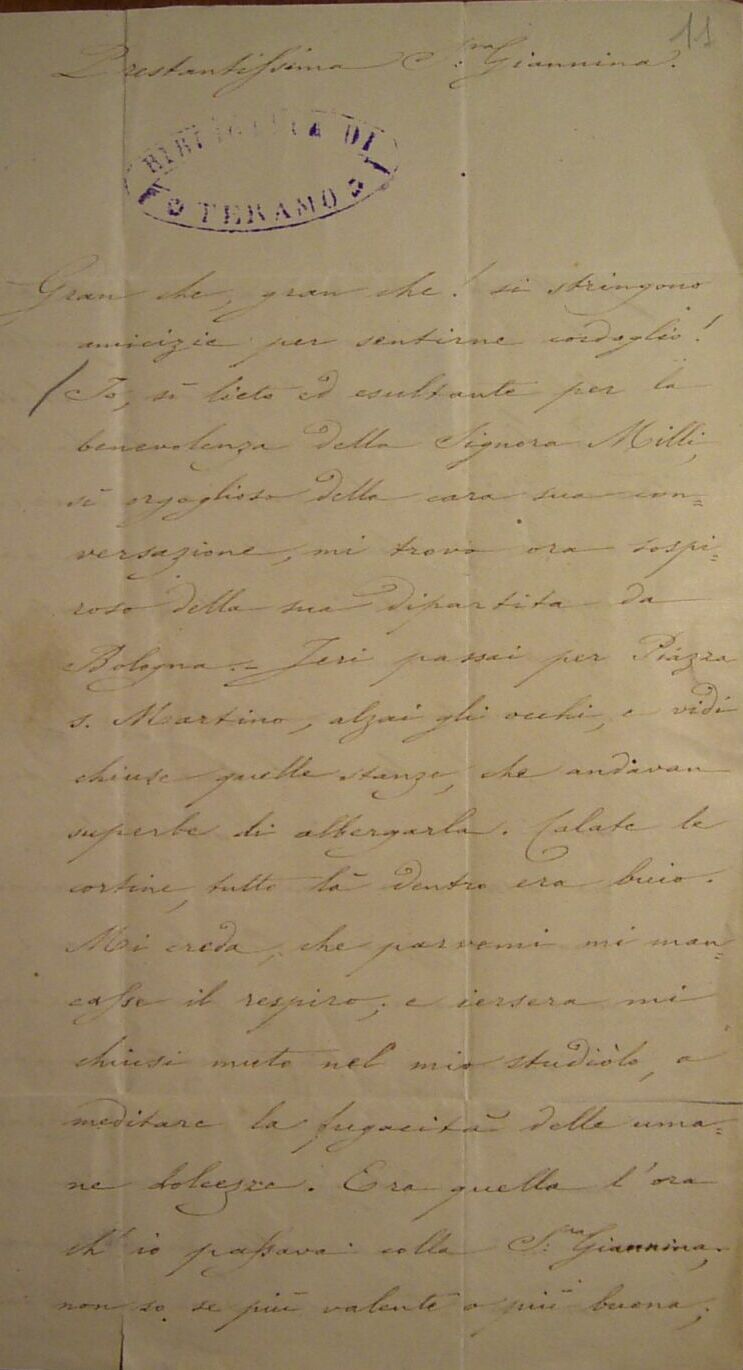 11
Prestantissima S.ra Giannina.
BIBLIOTECA DI
TERAMO
Gran che, gran che! si stringono
amicizie per sentirne cordoglio!
Io, sì lieto ed esultante per la
benevolenza della Signora Milli,
sì orgoglioso della cara sua con=
versazione, mi trovo ora sospi=
roso della sua dipartita da
Bologna. = Jeri passai per Piazza
s. Martino, alzai gli occhi, e vidi
chiuse quelle stanze, che andavan
superbe di albergarla. Calate le
cortine, tutto là dentro era buio.
Mi creda, che parvemi mi man=
casse il respiro; e iersera mi
chiusi muto nel mio studiòlo, a
meditare la fugacità delle uma=
ne dolcezze. Era quella l'ora
ch'io passava colla S.ra Giannina,
non so se più valente o più buona;